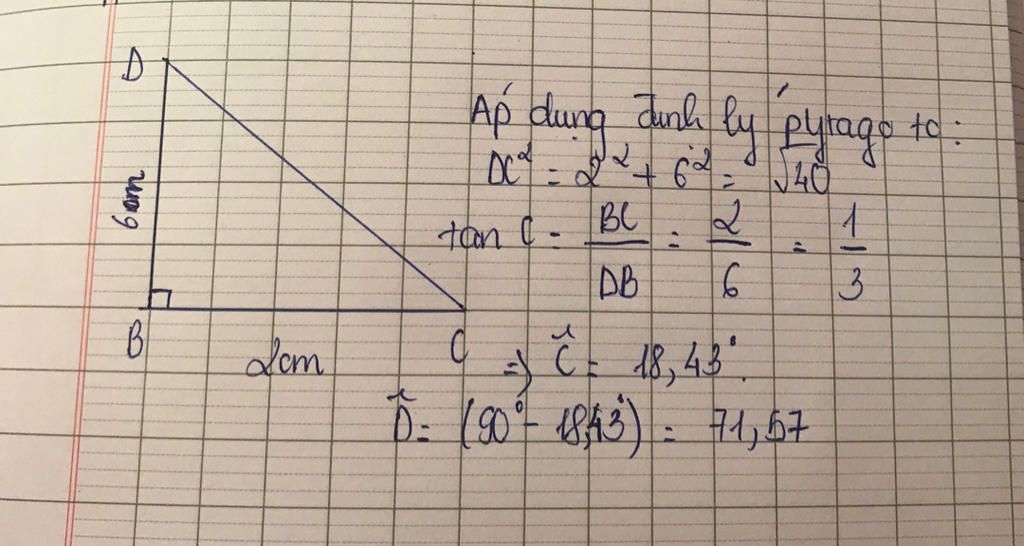 D
6cm
B
2cm
C
Áp dụng định lý pytago ta:
DC² = 2² + 6² = √40
tan C = BC/DB = 2/6 = 1/3
=> Ĉ = 18,43°.
D̂ = (90° - 18,43°) = 71,57